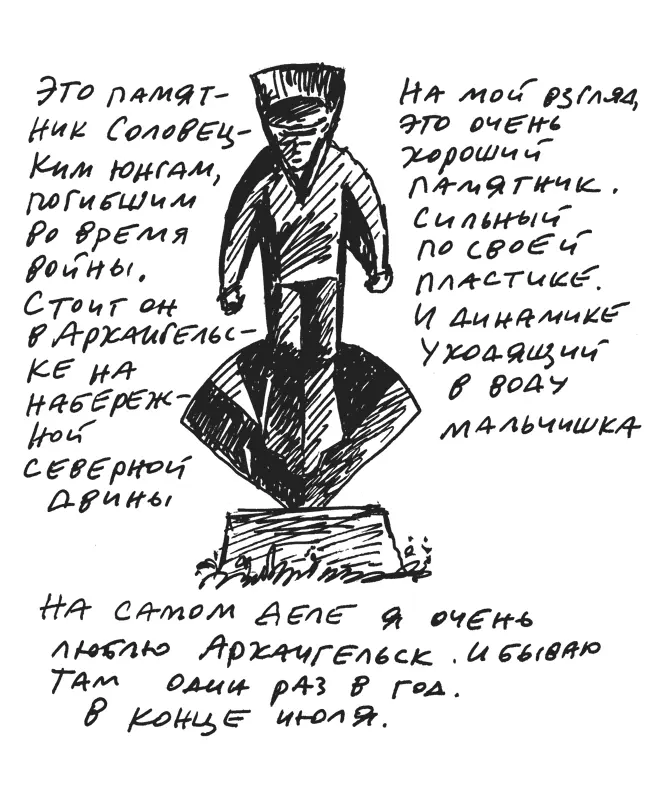 Это памят-
ник Соловец-
ким юнгам,
погибшим
во время
войны.
Стоит он
в Архангельс-
ке на
набереж-
ной
Северной
Двины
На мой взгляд,
это очень
хороший
памятник.
Сильный
по своей
пластике.
И динамике
Уходящий
в воду
мальчишка
На самом деле я очень
люблю Архангельск. И бываю
там один раз в год.
В конце июля.